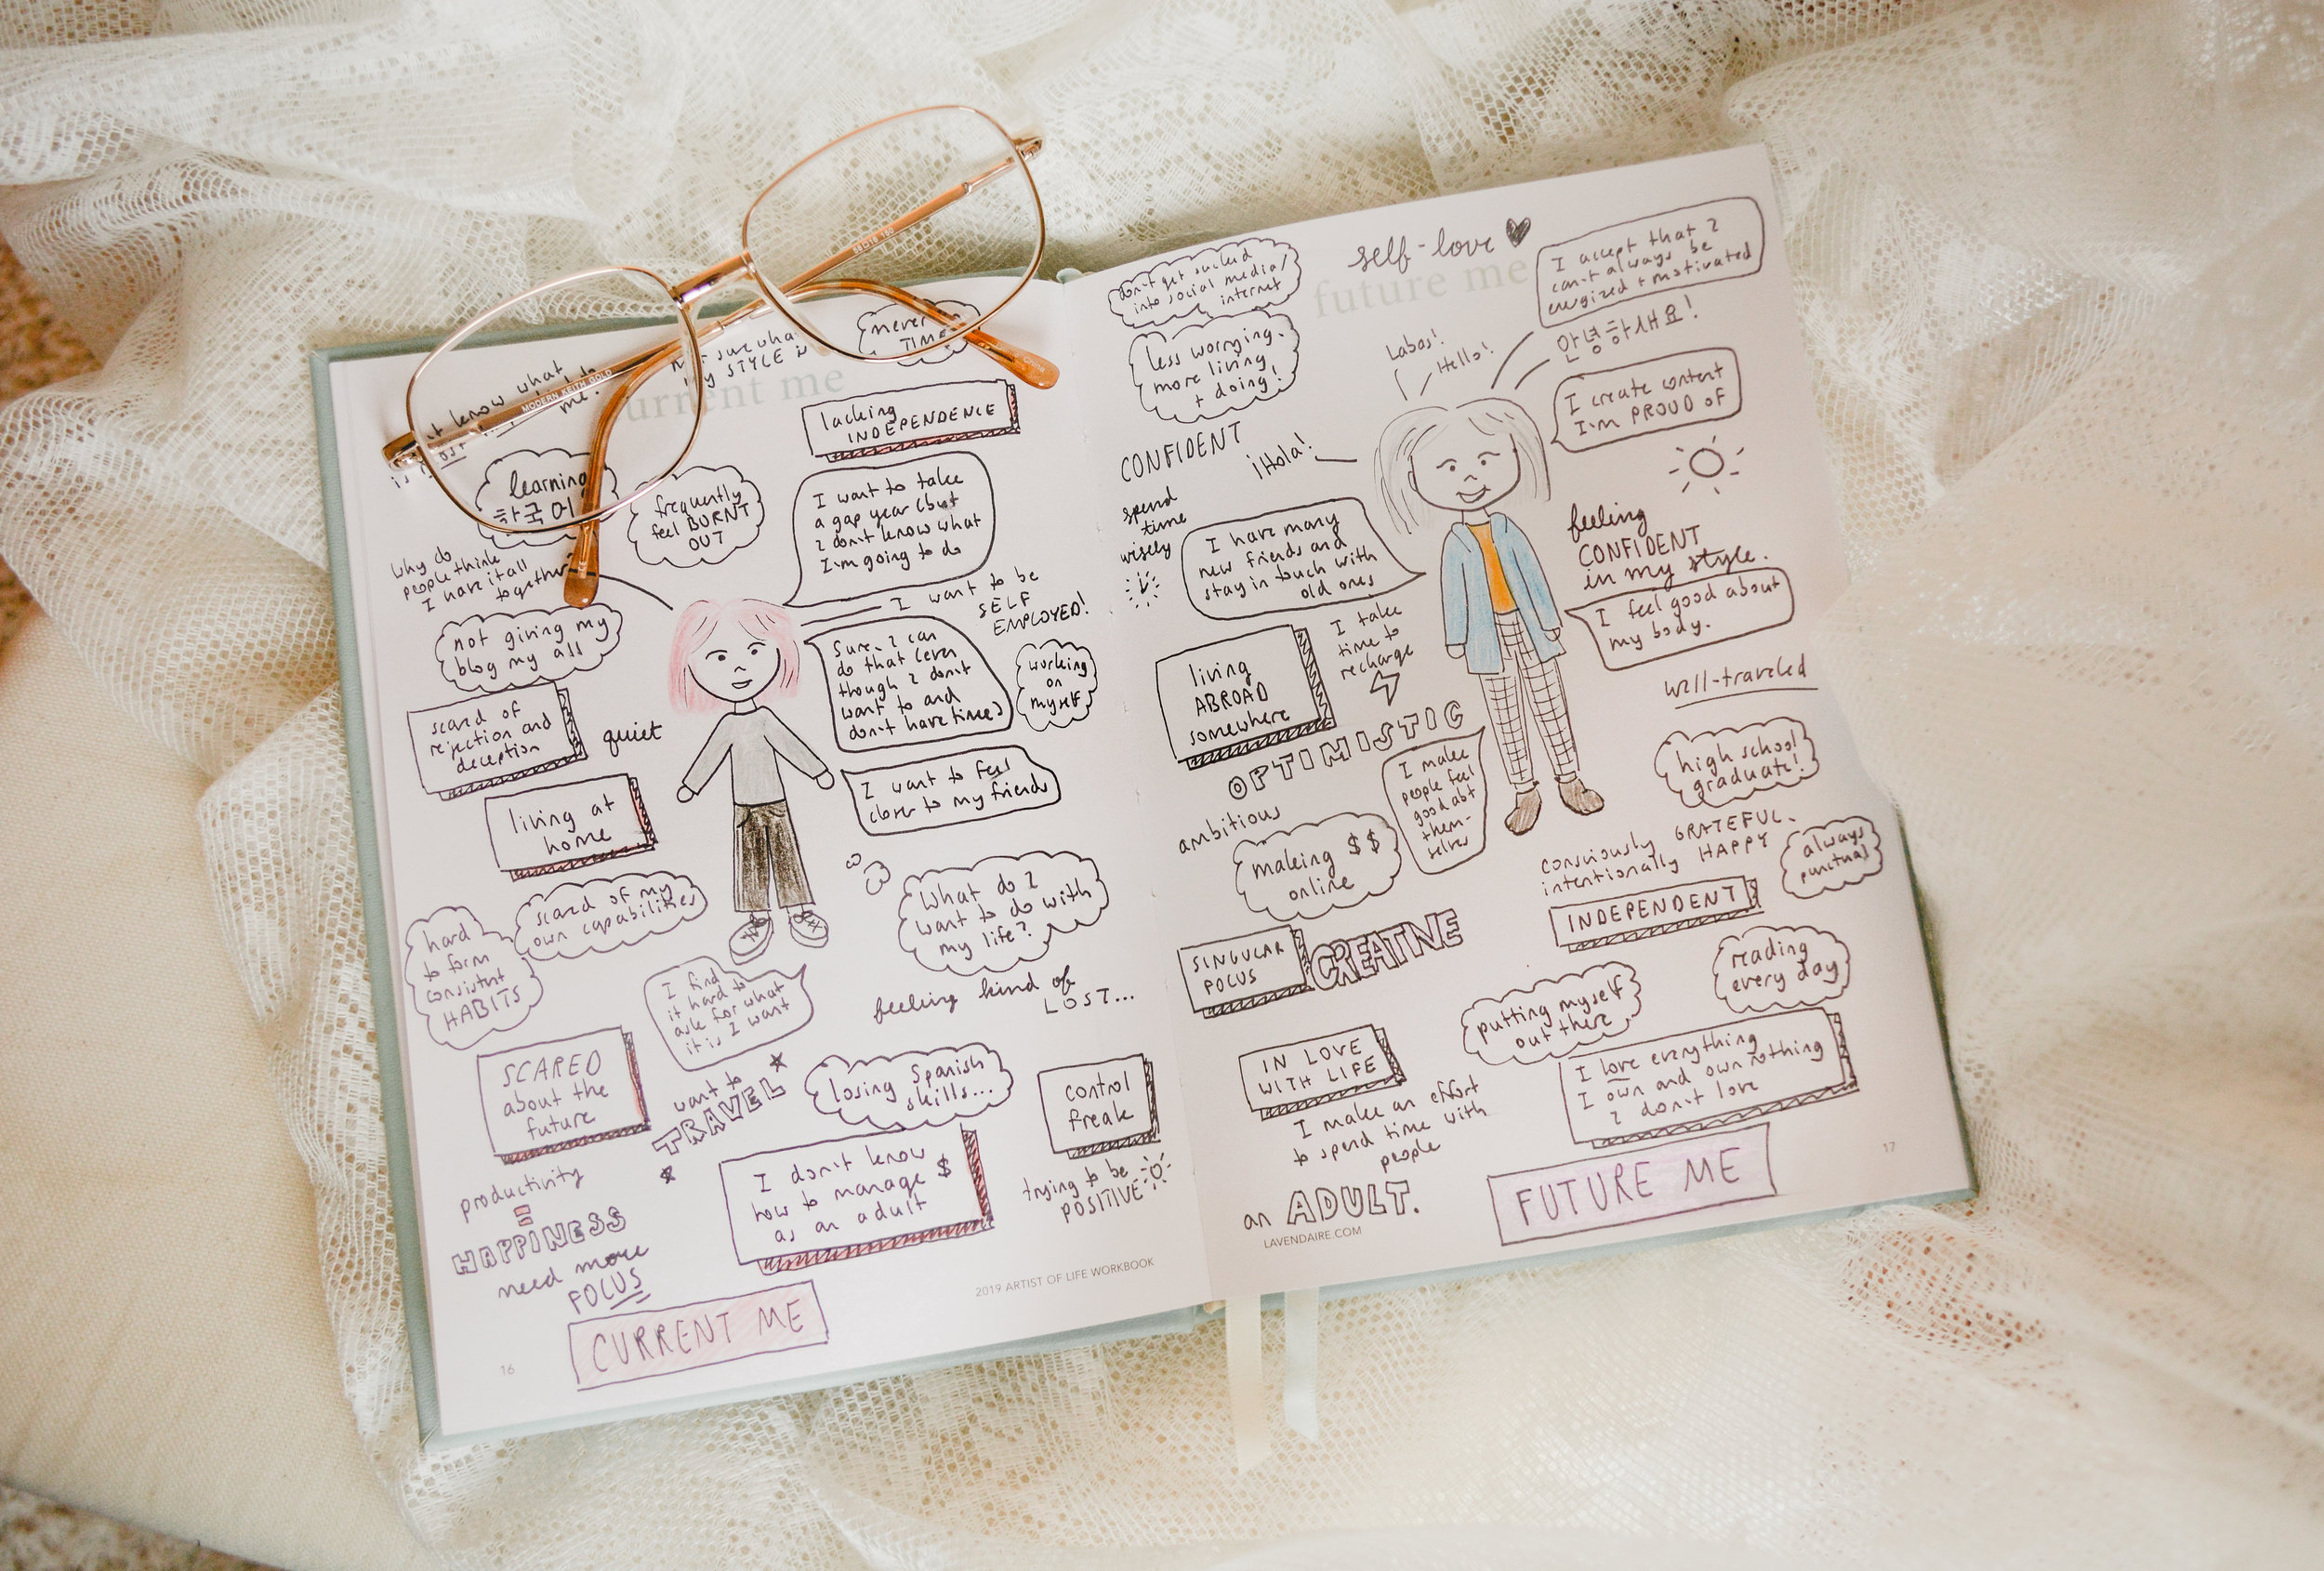 know what
me?
sure what
my STYLE is
never
TIME
current me
MODERN KEITH GOLD
lacking
INDEPENDENCE
learning
한국어
frequently
feel BURNT
OUT
I want to take
a gap year (but
I don't know what
I'm going to do
Why do
people think
I have it all
together?
I want to be
SELF
EMPLOYED!
not giving my
blog my all
Sure, I can
do that (even
though I don't
want to and
don't have time)
working
on
myself
scared of
rejection and
deception
quiet
I want to feel
closer to my friends
living at
home
scared of my
own capabilities
What do I
want to do with
my life?
hard
to form
consistent
HABITS
I find
it hard to
ask for what
it is I want
feeling kind of
LOST...
SCARED
about the
future
want to
TRAVEL
losing Spanish
skills...
control
freak
productivity
=
HAPPINESS
need more
FOCUS
I don't know
how to manage $
as an adult
trying to be
POSITIVE
2019 ARTIST OF LIFE WORKBOOK
CURRENT ME
16
self-love
future me
don't get sucked
into social media/
internet
I accept that I
can't always be
energized + motivated
less worrying.
more living
+ doing!
Labas!
Hello!
안녕하새요!
I create content
I'm PROUD OF
CONFIDENT
¡Hola!
spend
time
wisely
I have many
new friends and
stay in touch with
old ones
feeling
CONFIDENT
in my style.
I feel good about
my body.
I take
time to
recharge
living
ABROAD
somewhere
well-traveled
OPTIMISTIC
I make
people feel
good abt
them-
selves
high school
graduate!
ambitious
making $$
online
consciously GRATEFUL.
intentionally HAPPY
always
punctual
INDEPENDENT
SINGULAR
FOCUS
CREATIVE
reading
every day
putting myself
out there
IN LOVE
WITH LIFE
I love everything
I own and own nothing
I don't love
I make an effort
to spend time with
people
an ADULT.
FUTURE ME
LAVENDAIRE.COM
17